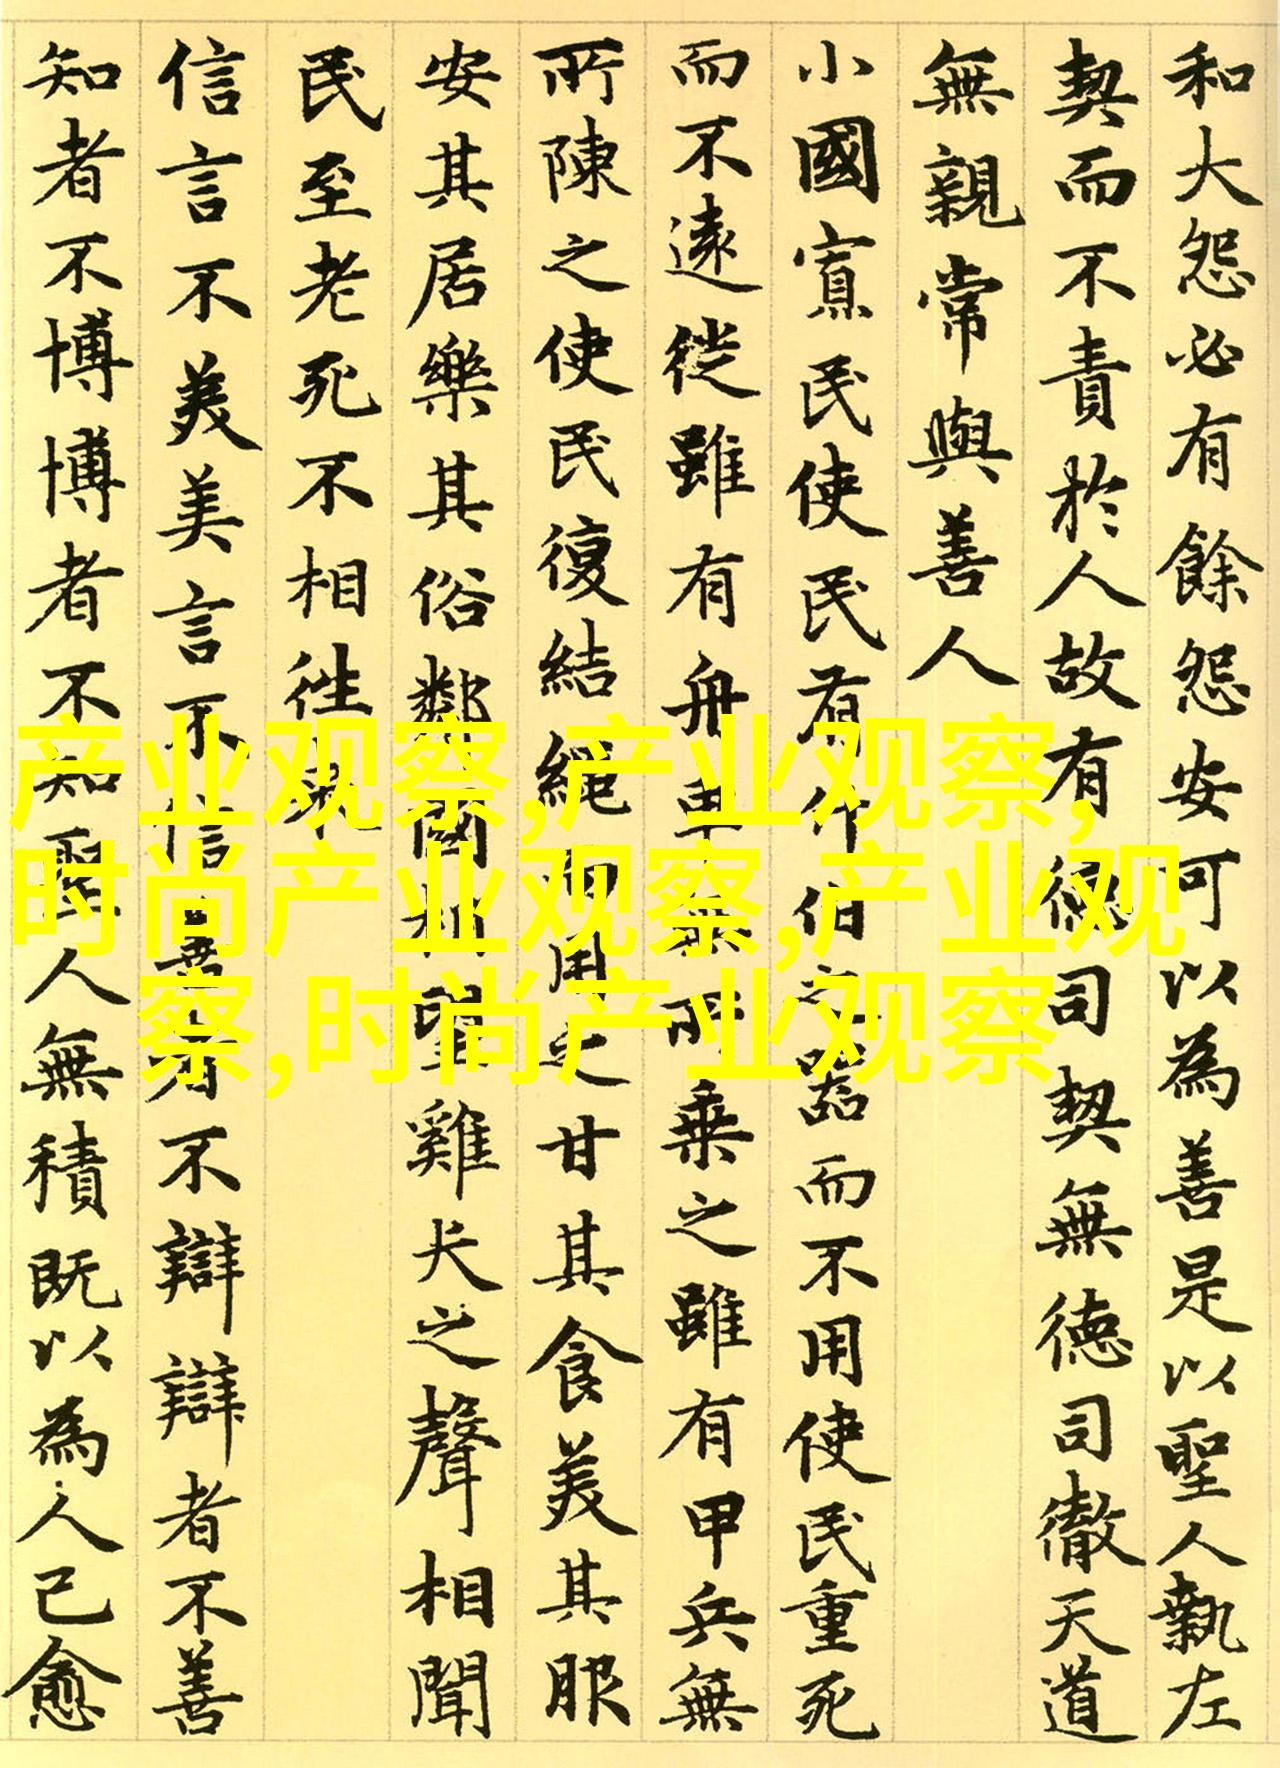 和大怨必有餘怨安可以為善是以聖人執左
契而不責於人故有德司契無德司徹天道
無親常與善人
小國寡民使民有什伯之器而不用使民重死
而不遠徙雖有舟車無所乗之雖有甲兵無
所陳之使民復結繩而用之甘其食美其服
安其居樂其俗鄰國相望雞犬之聲相聞
民至老死不相往来
信言不美美言不信善者不辯辯者不善
知者不博博者不知聖人無積既以為人已愈
产业观察,产业观察,
时尚产业观察,产业观
察,时尚产业观察